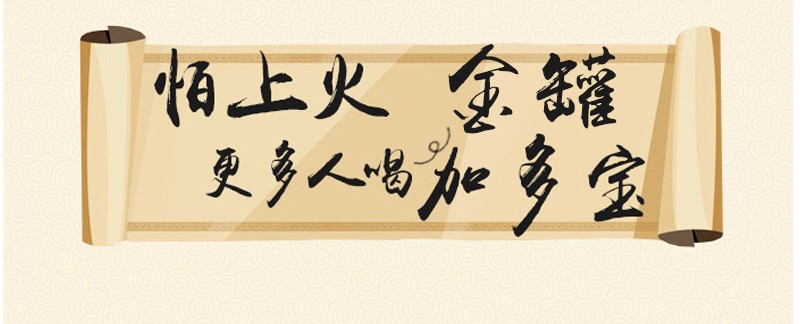 怕上火 金罐
更多人喝加多宝